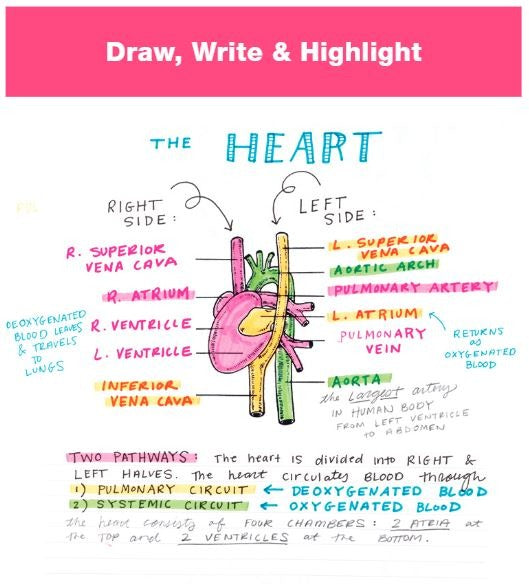 Draw, Write & Highlight
THE HEART
RIGHT SIDE:
LEFT SIDE:
R. SUPERIOR
VENA CAVA
R. ATRIUM
R. VENTRICLE
L. VENTRICLE
INFERIOR
VENA CAVA
DEOXYGENATED
BLOOD LEAVES
& TRAVELS
TO
LUNGS
L. SUPERIOR
VENA CAVA
AORTIC ARCH
PULMONARY ARTERY
L. ATRIUM
PULMONARY
VEIN
RETURNS
as
OXYGENATED
BLOOD
AORTA
the Largest artery
IN HUMAN BODY
FROM LEFT VENTRICLE
TO ABDOMEN
TWO PATHWAYS: The heart is divided into RIGHT &
LEFT HALVES. The heart circulates BLOOD through
1) PULMONARY CIRCUIT ← DEOXYGENATED BLOOD
2) SYSTEMIC CIRCUIT ← OXYGENATED BLOOD
the head consists of FOUR CHAMBERS: 2 ATRIA at
the TOP and 2 VENTRICLES at the BOTTOM.